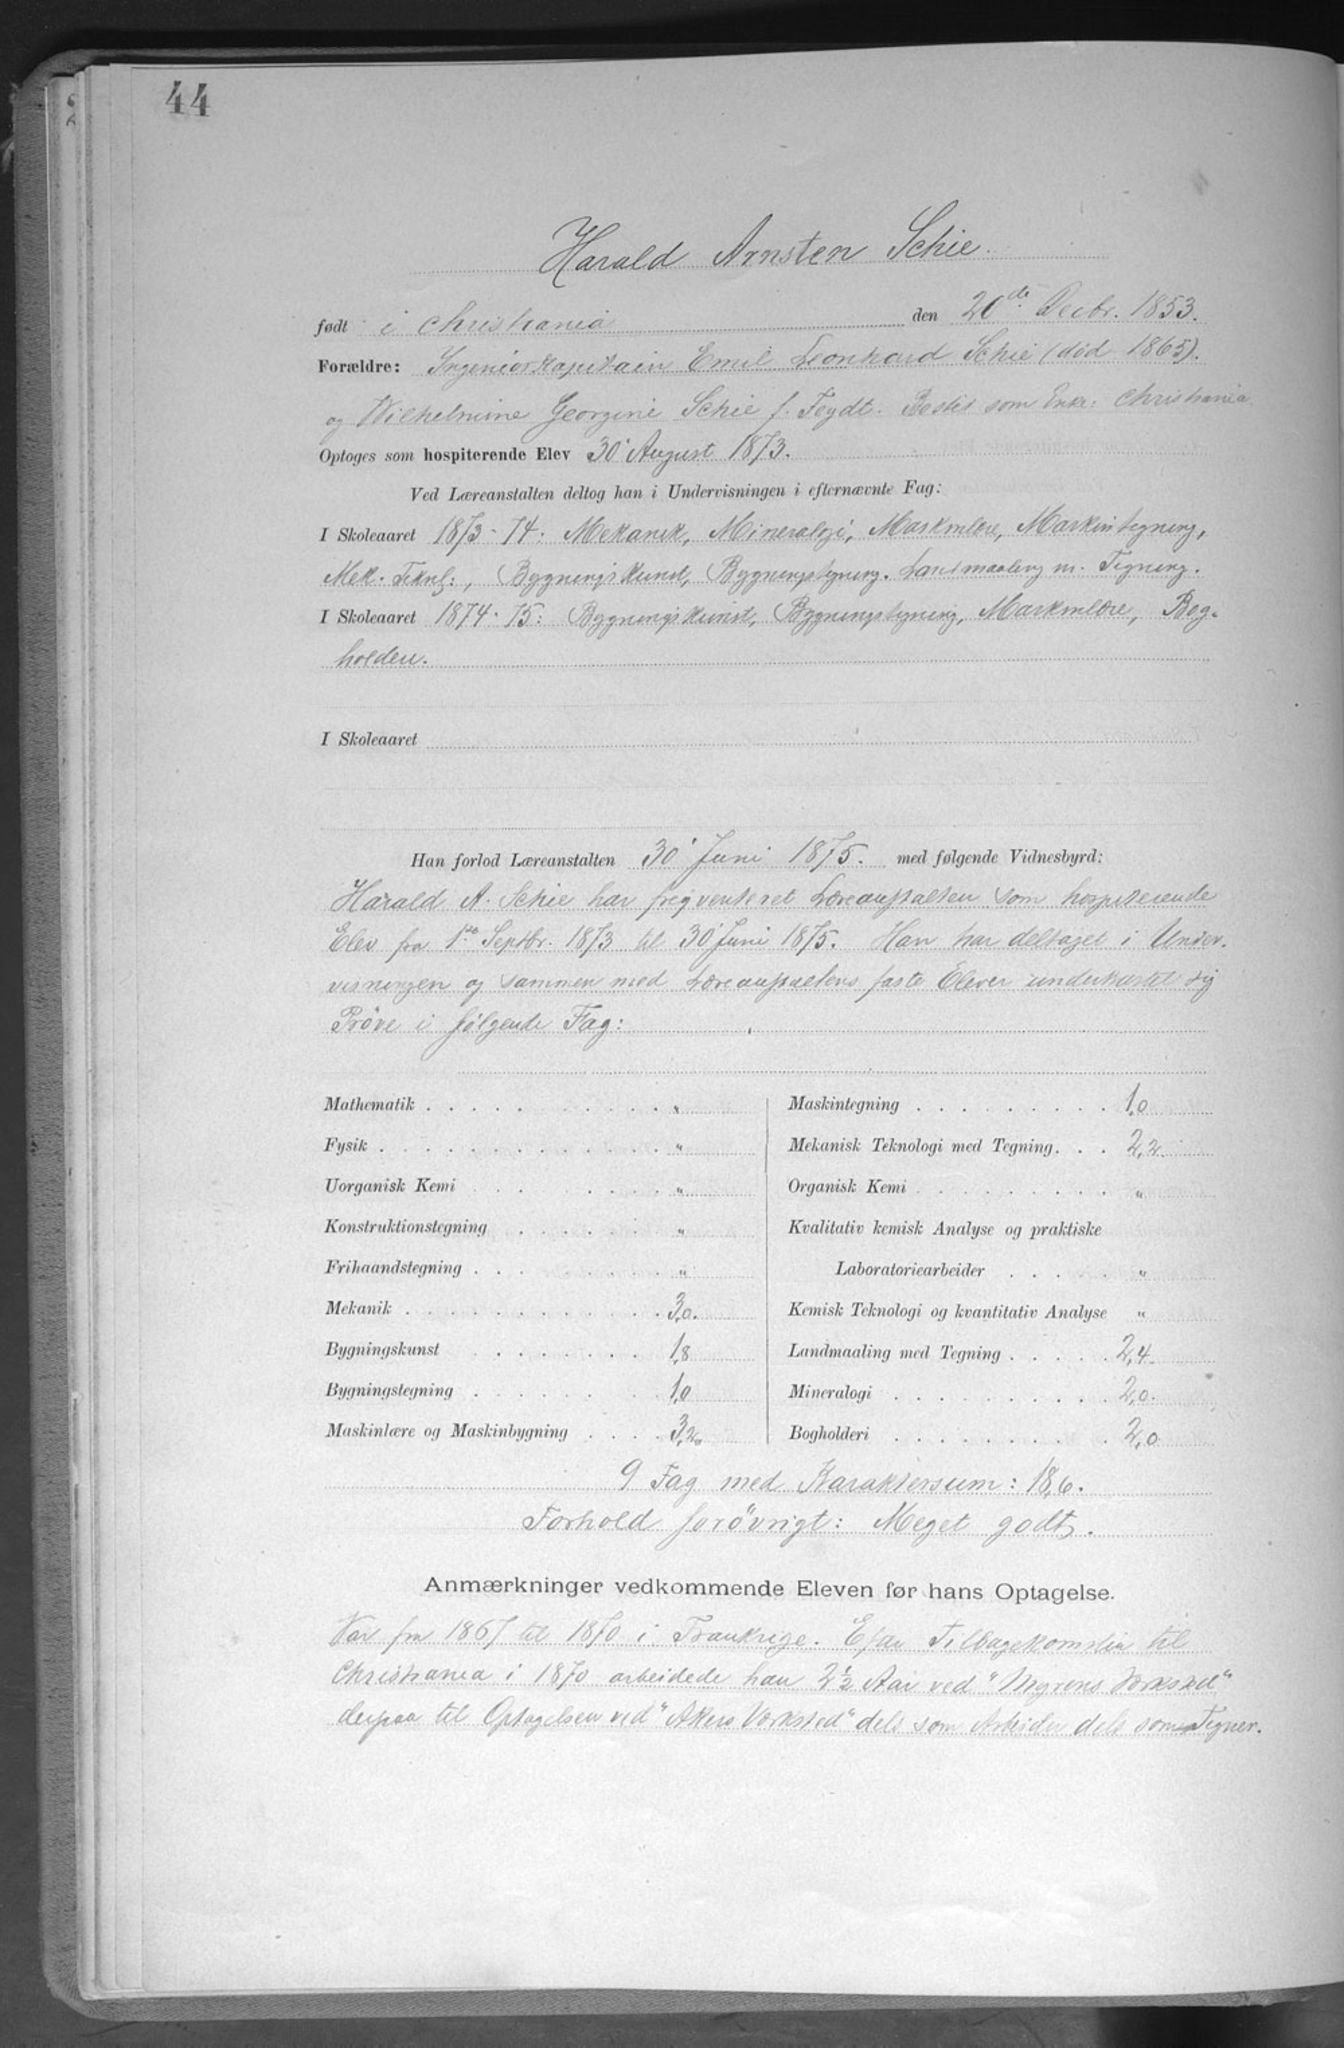 44
Harald Arnsten Schie.
født i Christiania den 20de Decbr. 1853.
Forældre: Ingeniørkapitain Emil Leonhard Schie (død 1865).
og Wilhelmine Georgine Schie f. Feydt. Bestis som Enke: Christiania
Optoges som hospiterende Elev 30' August 1873.
Ved Læreanstalten deltog han i Undervisningen i efternævnte Fag:
I Skoleaaret 1873-74: Mekanik, Mineralogi, Maskinlære, Maskintegning,
Mek. Teknl:, Bygningskunst, Bygningstegning. Landmaaling m. Tegning.
I Skoleaaret 1874-75: Bygningskunst, Bygningstegning, Maskinlære, Bog-
holderi.
I Skoleaaret
Han forlod Læreanstalten 30' Juni 1875. med følgende Vidnesbyrd:
Harald A. Schie har freqventeret Læreanstalten som hospiterende
Elev fra 1ste Septbr. 1873 til 30' Juni 1875. Han har deltaget i Under-
visningen og sammen med Læreanstaltens faste Elever underkastet sig
Pröve i fölgende Fag:
Mathematik . . . "
Fysik . . . "
Uorganisk Kemi . . . "
Konstruktionstegning . . . "
Frihaandstegning . . . "
Mekanik . . . 3,0.
Bygningskunst . . . 1,8
Bygningstegning . . . 1,0
Maskinlære og Maskinbygning . . . 3,2.
Maskintegning . . . 1,0
Mekanisk Teknologi med Tegning. . . 2,2.
Organisk Kemi . . . "
Kvalitativ kemisk Analyse og praktiske
Laboratoriearbeider . . . "
Kemisk Teknologi og kvantitativ Analyse "
Landmaaling med Tegning . . . 2,4.
Mineralogi . . . 2,0.
Bogholderi . . . 2,0
9 Fag med Karaktersum: 18,6.
Forhold forövrigt: Meget godt.
Anmærkninger vedkommende Eleven før hans Optagelse.
Var fra 1867 til 1870 i Frankrige. Efter Tilbagekomsten til
Christiania i 1870 arbeidede han 2½ Aar ved "Myrens Værksted"
derpaa til Optagelsen ved "Akers Værksted" dels som Arbeider dels som Tegner.